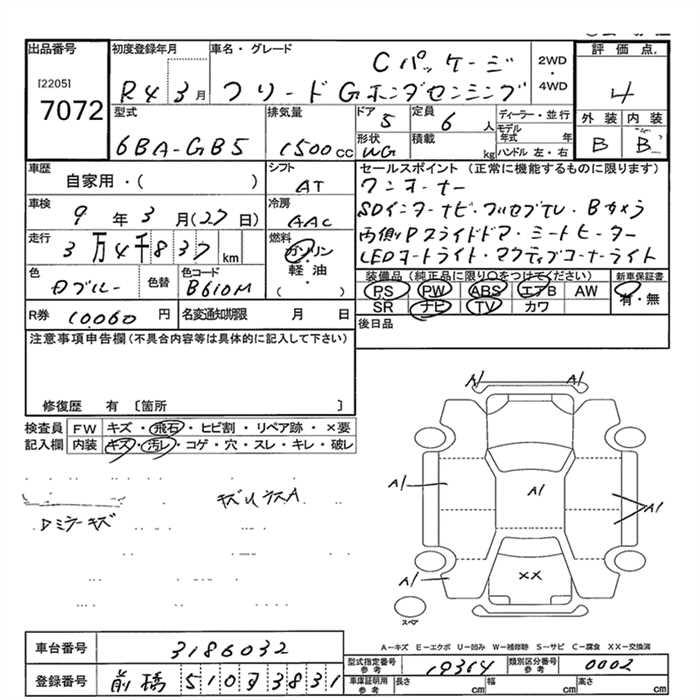 出品番号 初度登録年月 車名・グレード Cパッケージ 2WD・4WD 評価点
[2205] 7072 R4 3月 フリードGホンダセンシング 4
型式 排気量 ドア 定員 ディーラー・並行 外装 内装
6BA-GB5 1500cc 5 6人 モデル年式 年 B B
形状 積載 ハンドル 左・右
WG kg
車歴 シフト セールスポイント (正常に機能するものに限ります)
自家用・( ) AT ワンオーナー
車検 冷房 SDインターナビ・フルセグTV・Bカメラ
9年3月(27日) AAC 両側Pスライドドア・シートヒーター
走行 燃料 LEDオートライト・アクティブコーナーライト
3万4千837km ガソリン・軽油
色 色替 色コード ( ) 装備品(純正品に限り○をつけてください) 新車保証書
Dブルー B610M PS PW ABS エアB AW 有・無
SR ナビ TV カワ
R券 10060円 名変通知期限 月 日 後日品
注意事項申告欄(不具合内容等は具体的に記入して下さい)
修復歴 有 〔箇所 〕
検査員 FW キズ・飛石・ヒビ割・リペア跡・×要
記入欄 内装 キズ・汚レ・コゲ・穴・スレ・キレ・破レ
Dミラーキズ
A1 A1
A1 A1 A1
A1 XX
スペア
A-キズ E-エクボ U-凹み W-補修跡 S-サビ C-腐食 XX-交換済
車台番号 3186032
型式指定番号 参考 19364 類別区分番号 参考 0002
登録番号 前橋 510 3831
車庫証明用 参考 長さ cm 幅 cm 高さ cm